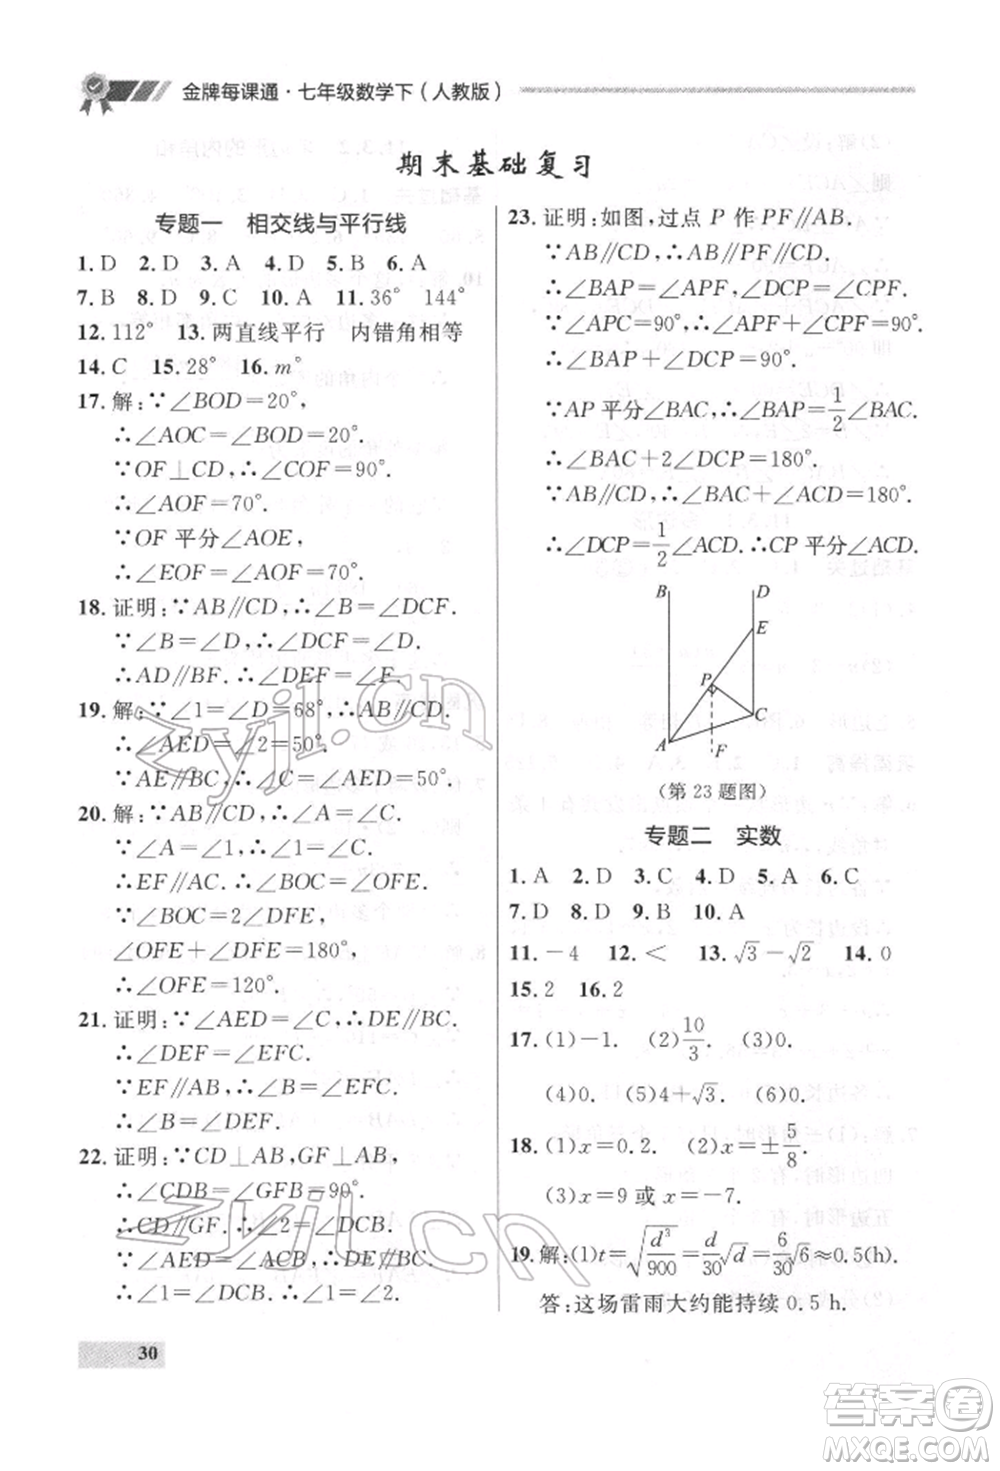 金牌每课通·七年级数学下(人教版)
期末基础复习
专题一 相交线与平行线
1. D 2. D 3. A 4. D 5. B 6. A
7. B 8. D 9. C 10. A 11. 36° 144°
12. 112° 13. 两直线平行 内错角相等
14. C 15. 28° 16. m°
17. 解:∵∠BOD=20°,
∴∠AOC=∠BOD=20°.
∵OF⊥CD,∴∠COF=90°.
∴∠AOF=70°.
∵OF 平分∠AOE,
∴∠EOF=∠AOF=70°.
18. 证明:∵AB∥CD,∴∠B=∠DCF.
∵∠B=∠D,∴∠DCF=∠D.
∴AD∥BF. ∴∠E=∠F.
19. 解:∵∠1=∠D=68°,
∴∠AED=∠2=50°.
∵AE∥BC,∴∠C=∠AED=50°.
20. 解:∵∠A=∠C,
∵∠A=∠1,∴∠1=∠C.
∴EF∥AC. ∴∠BOC=∠OFE.
∵∠BOC=2∠DFE,
∠OFE+∠DFE=180°,
∴∠OFE=120°.
21. 证明:∵∠AED=∠C,∴DE∥BC.
∴∠DEF=∠EFC.
∵EF∥AB,∴∠B=∠EFC.
∴∠B=∠DEF.
22. 证明:∵CD⊥AB,GF⊥AB,
∴∠CDB=∠GFB=90°.
∴CD∥GF. ∴∠2=∠DCB.
∵∠AED=∠ACB,∴DE∥BC.
∴∠1=∠DCB. ∴∠1=∠2.
30
23. 证明:如图,过点 P 作 PF∥AB.
∵AB∥CD,∴AB∥PF∥CD.
∴∠BAP=∠APF,∠DCP=∠CPF.
∵∠APC=90°,∴∠APF+∠CPF=90°.
∴∠BAP+∠DCP=90°.
∵AP 平分∠BAC,∴∠BAP=1/2∠BAC.
∴∠BAC+2∠DCP=180°.
∵AB∥CD,∴∠BAC+∠ACD=180°.
∴∠DCP=1/2∠ACD. ∴CP 平分∠ACD.
B D
E
P
C
A F
(第 23 题图)
专题二 实数
1. A 2. D 3. C 4. D 5. A 6. C
7. D 8. D 9. B 10. A
11. -4 12. < 13. √3-√2 14. 0
15. 2 16. 2
17. (1)-1. (2)10/3. (3)0.
(4)0. (5)4+√3. (6)0.
18. (1)x=0.2. (2)x=±5/8.
(3)x=9 或 x=-7.
19. 解:(1)t=√(d³/900)=d/30√d=6/30√6≈0.5(h).
答:这场雷雨大约能持续 0.5 h.
zyjl.cn
zyjl.cn
答案圈
MXQE.COM